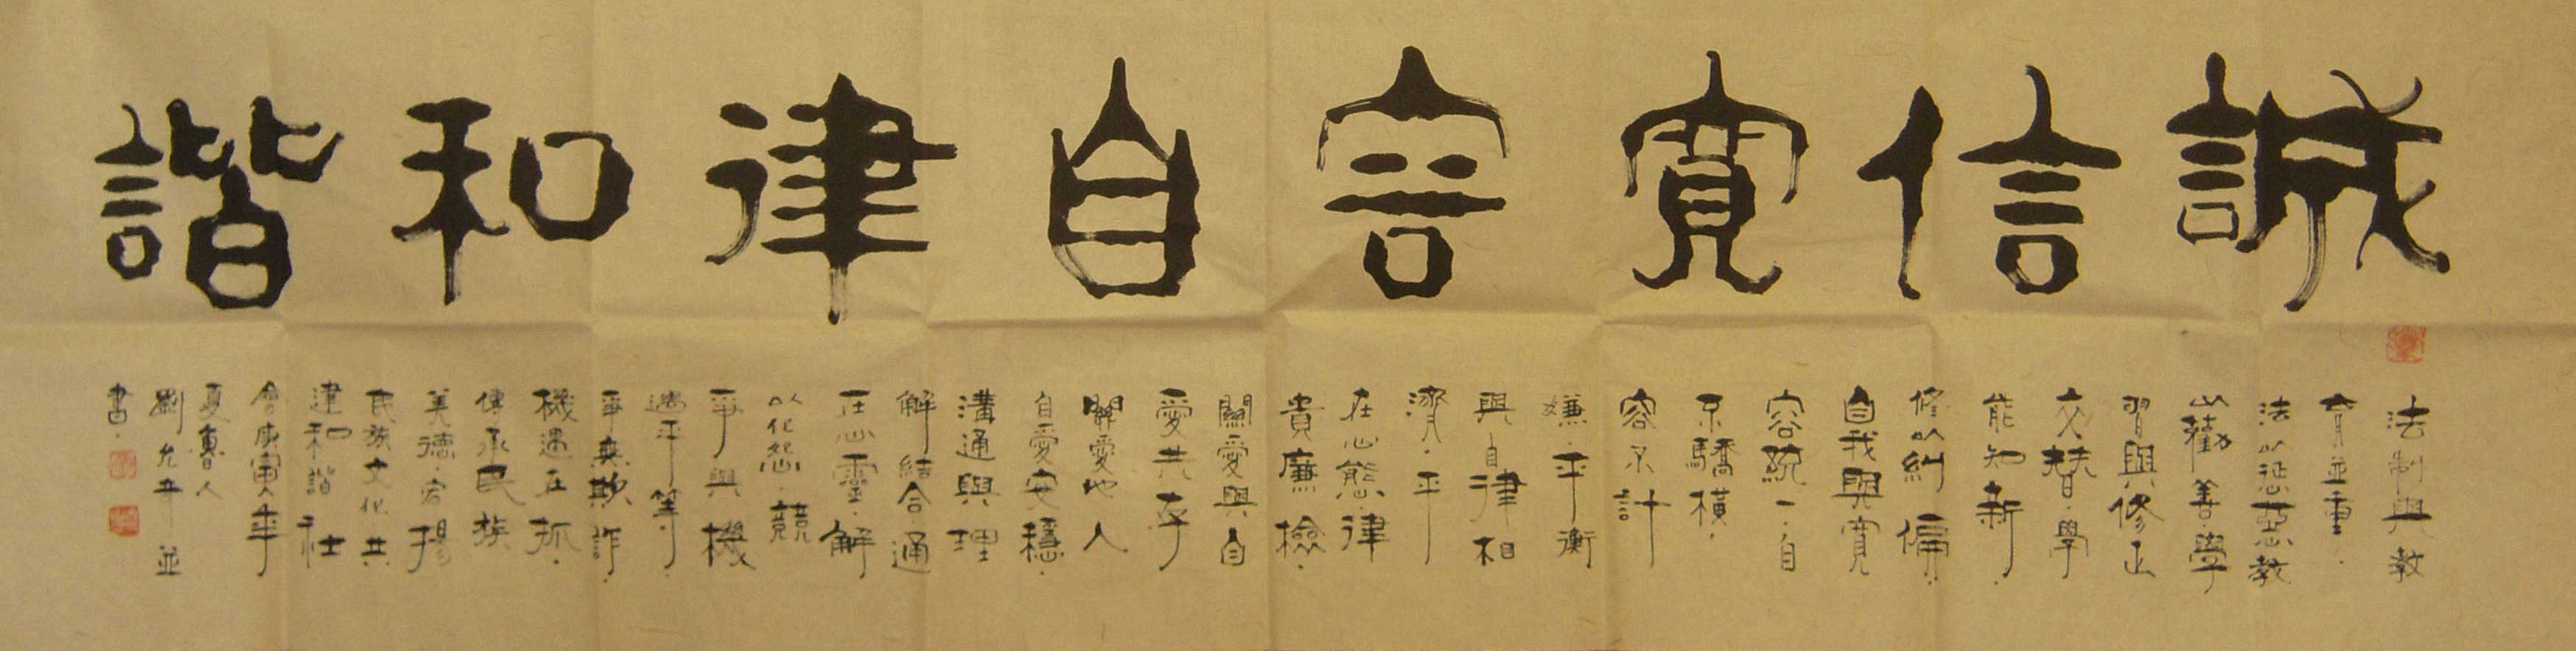 誠信寬容自律和諧
法制與教
育並重
法以惩惡教
以勸善學
習與修正
交替學
能知新
修以糾偏
自我與寬
容統一自
不驕橫
容不計
嫌平衡
與自律相
濟平
在心態律
貴廉檢
關愛與自
愛共存
關愛他人
自愛安穩
溝通與理
解結合通
在心靈解
以化怨競
爭與機
遇平等
爭無欺詐
機遇在抓
傳承民族
美德宏揚
民族文化共
建和諧社
會庚寅年
夏魯人
劉允平並
書